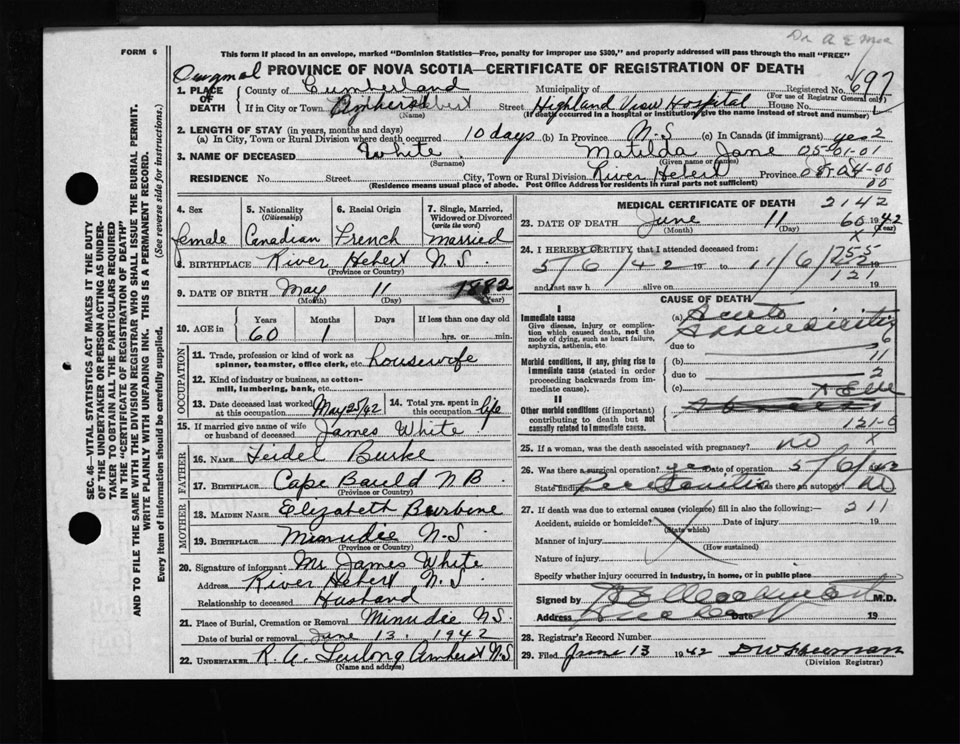 FORM 6
This form if placed in an envelope, marked "Dominion Statistics—Free, penalty for improper use $300," and properly addressed will pass through the mail "FREE"
PROVINCE OF NOVA SCOTIA—CERTIFICATE OF REGISTRATION OF DEATH
1. PLACE OF DEATH
County of Cumberland Municipality of Registered No. 697
(For use of Registrar General only)
If in City or Town Amherst Street Highland View Hospital House No.
(Name) (If death occurred in a hospital or institution give the name instead of street and number)
2. LENGTH OF STAY (in years, months and days)
(a) In City, Town or Rural Division where death occurred 10 days (b) In Province N.S (c) In Canada (if immigrant)
3. NAME OF DECEASED White Matilda Jane 05-01-01
(Surname) (Given name or names)
RESIDENCE No. Street City, Town or Rural Division River Hebert Province
(Residence means usual place of abode. Post Office Address for residents in rural parts not sufficient)
4. Sex female
5. Nationality (Citizenship) Canadian
6. Racial Origin French
7. Single, Married, Widowed or Divorced (write the word) Married
8. BIRTHPLACE River Hebert N.S.
(Province or Country)
9. DATE OF BIRTH May 11 1882
(Month) (Day) (Year)
10. AGE in Years 60 Months 1 Days If less than one day old hrs. or min.
OCCUPATION
11. Trade, profession or kind of work as spinner, teamster, office clerk, etc. housewife
12. Kind of industry or business, as cotton-mill, lumbering, bank, etc.
13. Date deceased last worked at this occupation May 25/42
14. Total yrs. spent in this occupation life
15. If married give name of wife or husband of deceased James White
FATHER
16. NAME Burke
17. BIRTHPLACE Cape Bauld N B
(Province or Country)
MOTHER
18. MAIDEN NAME Elizabeth
19. BIRTHPLACE Minudie N.S.
(Province or Country)
20. Signature of informant Mr James White
Address River Hebert N.S.
Relationship to deceased Husband
21. Place of Burial, Cremation or Removal Minudie N.S.
Date of burial or removal June 13, 1942
22. UNDERTAKER R. A. Amherst N.S
(Name and address)
MEDICAL CERTIFICATE OF DEATH 2142
23. DATE OF DEATH June 11 1942
(Month) (Day) (Year)
24. I HEREBY CERTIFY, that I attended deceased from:
5/6/42 19 to 11/6/ 19
and last saw h alive on 19
CAUSE OF DEATH
Immediate cause
Give disease, injury or complication which caused death, not the mode of dying, such as heart failure, asphyxia, asthenia, etc.
(a) Acute Appendicitis
due to
Morbid conditions, if any, giving rise to immediate cause (stated in order proceeding backwards from immediate cause).
(b)
due to
(c)
II
Other morbid conditions (if important) contributing to death but not causally related to immediate cause.
25. If a woman, was the death associated with pregnancy? no
26. Was there a surgical operation? yes Date of operation 5/6/42
State finding Was there an autopsy? No
27. If death was due to external causes (violence) fill in also the following:— 211
Accident, suicide or homicide? Date of injury 19
(State which)
Manner of injury
(How sustained)
Nature of injury
Specify whether injury occurred in industry, in home, or in public place
Signed by M.D.
Address Date 19
28. Registrar's Record Number
29. Filed June 13 1942
(Division Registrar)
SEC. 46—VITAL STATISTICS ACT MAKES IT THE DUTY OF THE UNDERTAKER OR PERSON ACTING AS UNDERTAKER TO OBTAIN ALL THE PARTICULARS REQUIRED IN THE "CERTIFICATE OF REGISTRATION OF DEATH" AND TO FILE THE SAME WITH THE DIVISION REGISTRAR WHO SHALL ISSUE THE BURIAL PERMIT.
WRITE PLAINLY WITH UNFADING INK. THIS IS A PERMANENT RECORD.
Every item of information should be carefully supplied. (See reverse side for instructions.)